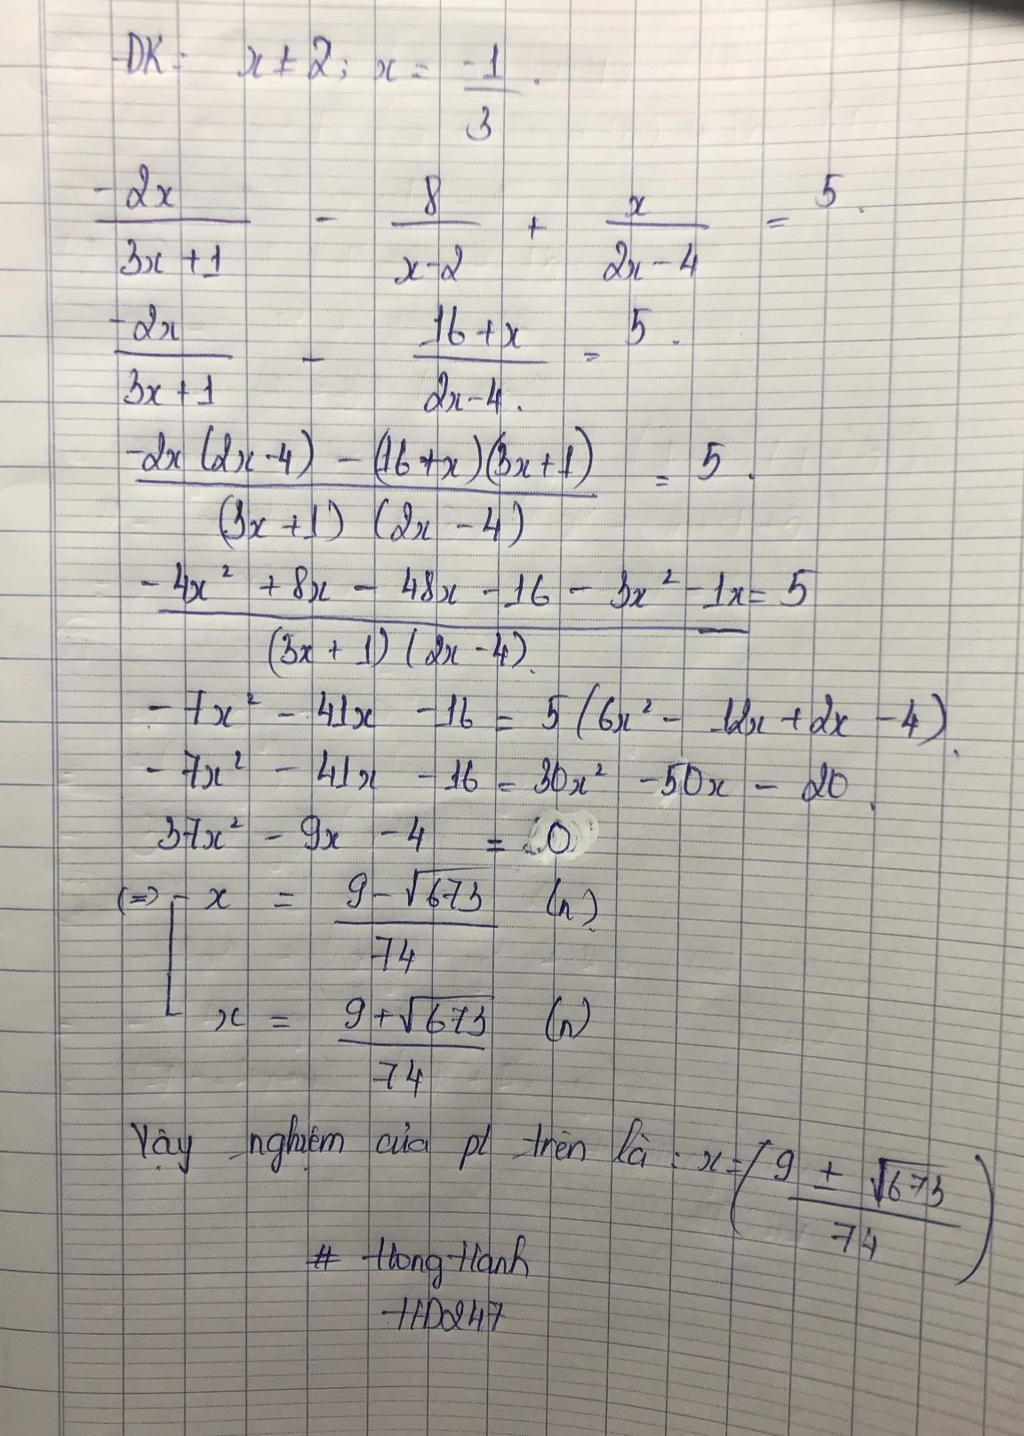 ĐK: x ≠ 2; x = -1/3.
-2x/(3x+1) - 8/(x-2) + x/(2x-4) = 5.
-2x/(3x+1) - (16+x)/(2x-4) = 5.
(-2x(2x-4) - (16+x)(3x+1))/((3x+1)(2x-4)) = 5.
(-4x² + 8x - 48x - 16 - 3x² - 1x)/((3x+1)(2x-4)) = 5
-7x² - 41x - 16 = 5(6x² - 12x + 2x - 4).
-7x² - 41x - 16 = 30x² - 50x - 20.
37x² - 9x - 4 = 0
(=> [ x = (9-√673)/74 (n)
x = (9+√673)/74 (n)
Vậy nghiệm của pt trên là: x = ((9 ± √673)/74)
# Hong Hanh
HD247